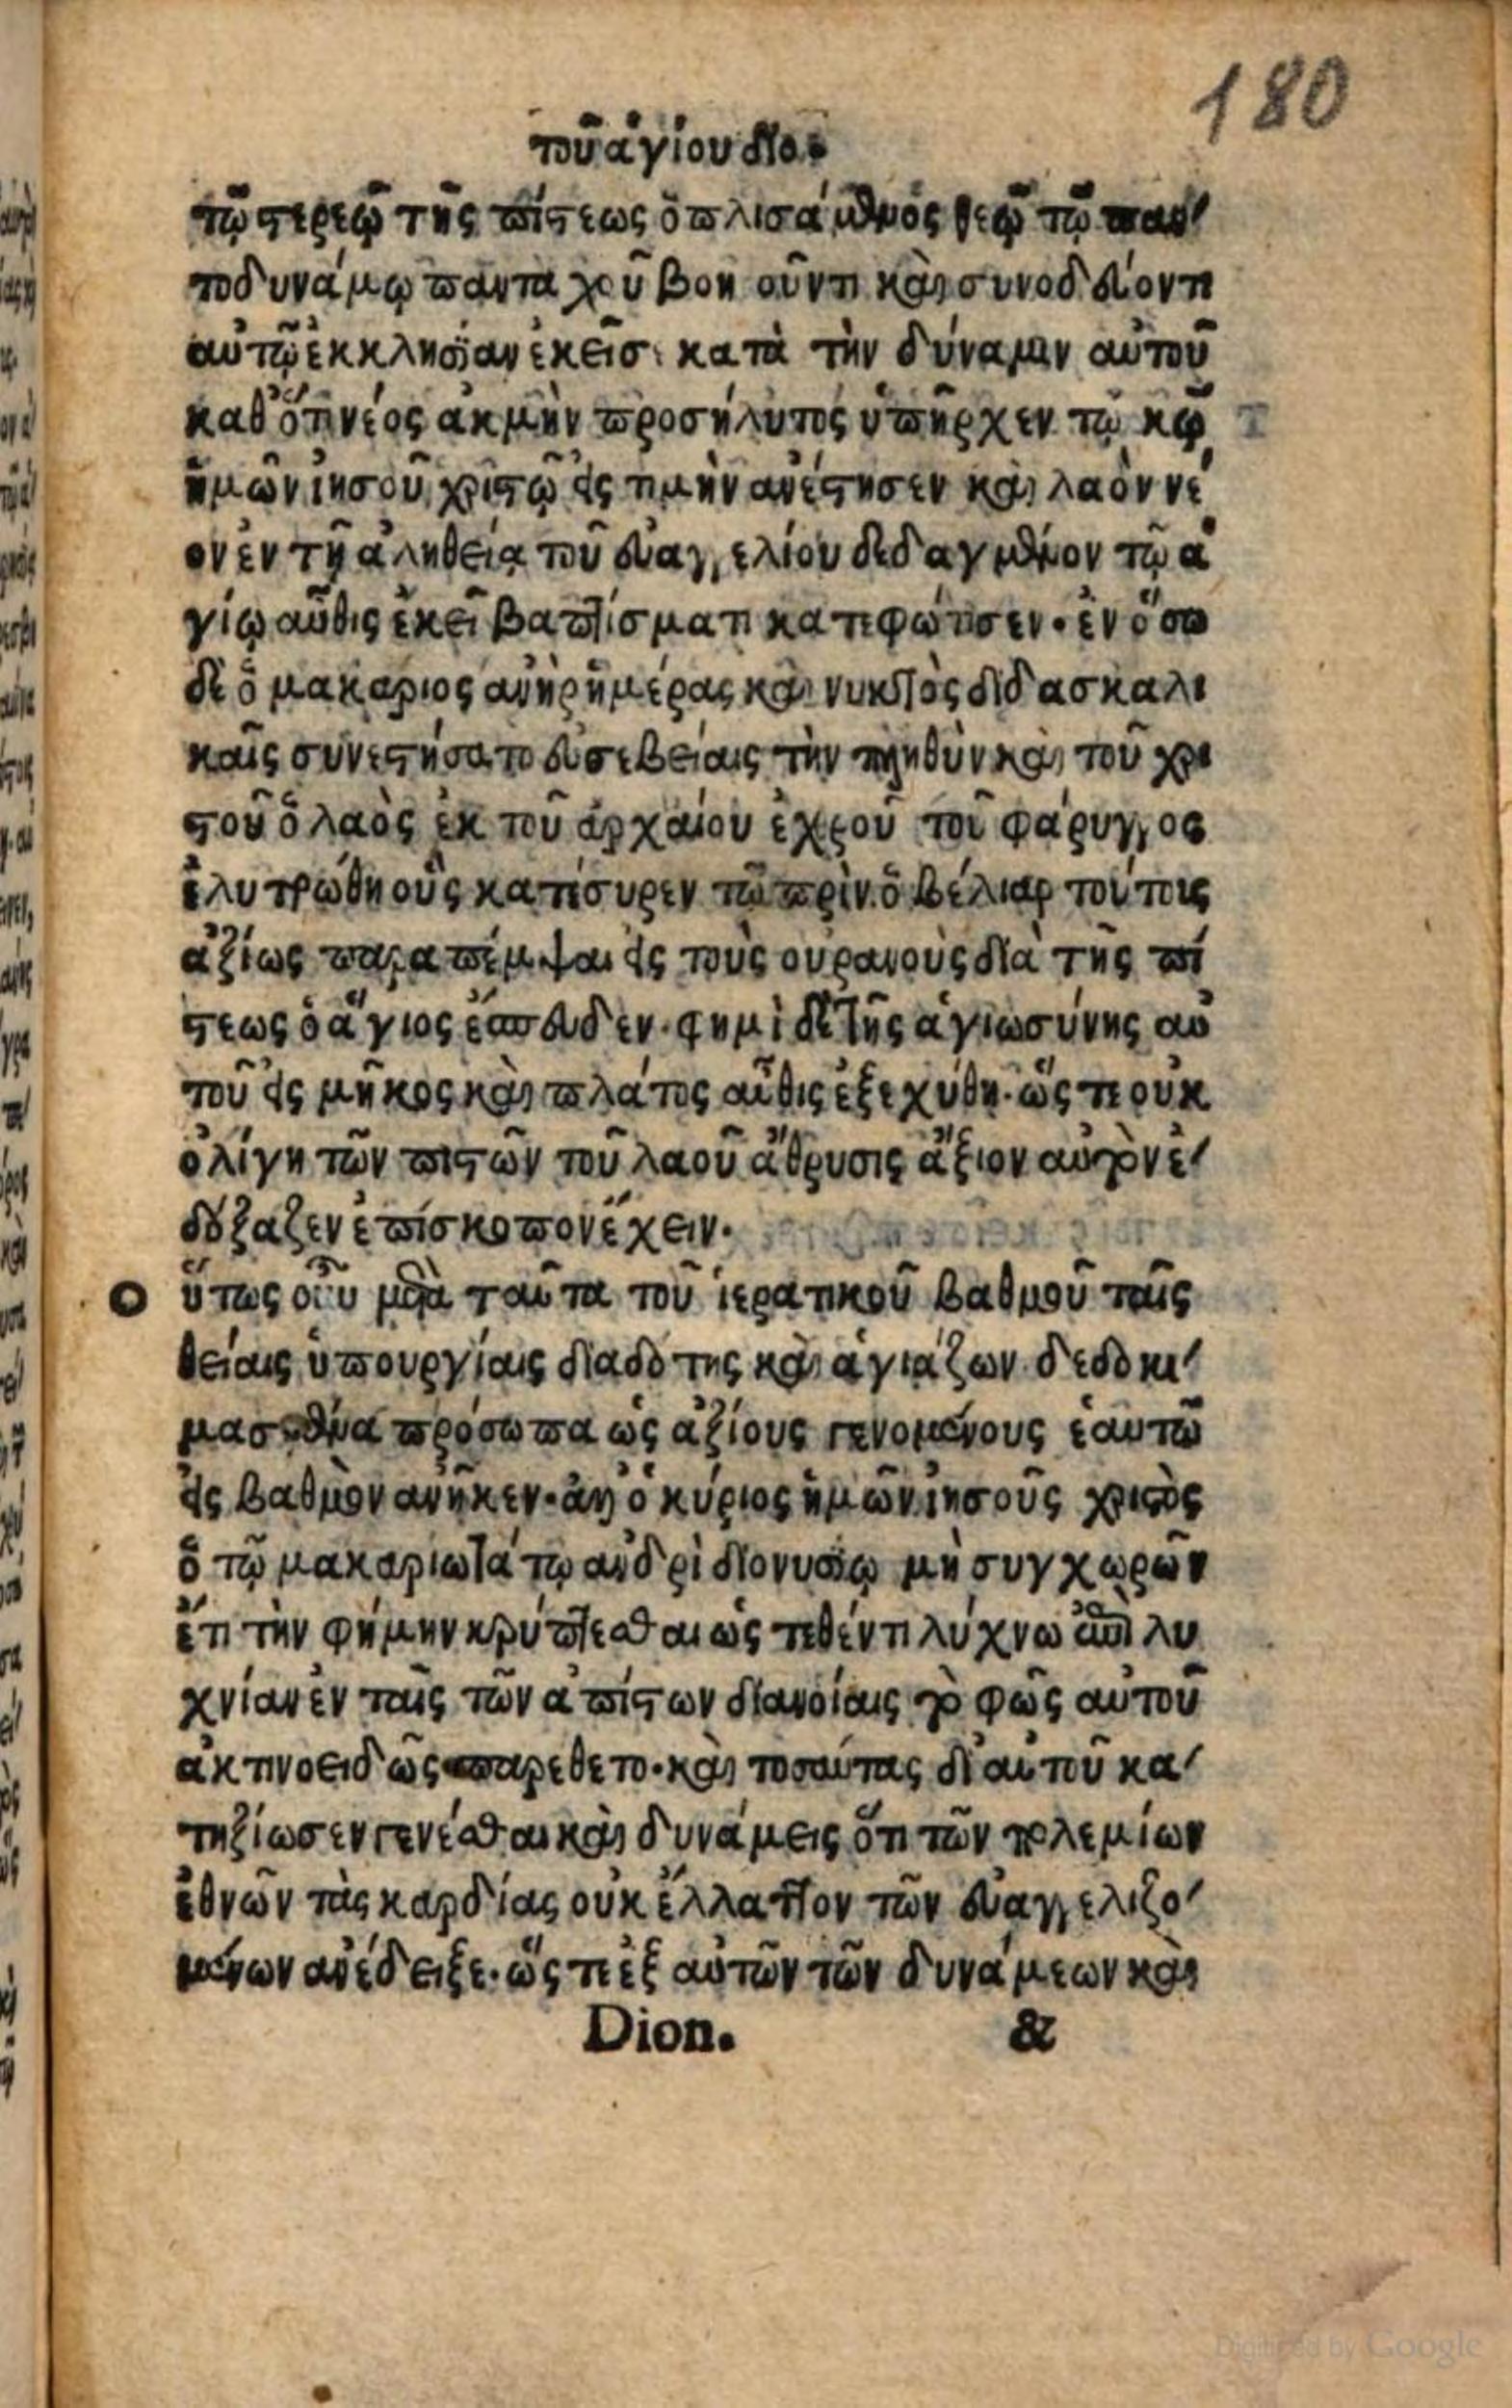 180
τοῦ ἁγίου διο.
τῷ στερεῷ τῆς πίστεως ὁπλισάμενός θεῷ τῷ παν
τοδυνάμῳ πανταχοῦ βοηοῦντι καὶ συνοδεύοντι
αὐτῷ ἐκκλησίαν ἐκεῖσε κατὰ τὴν δύναμιν αὐτοῦ
καθ' ὅτι νέος ἀκμὴν προσήλυτος ὑπῆρχεν τῷ κῷ
ἡμῶν ἰησοῦ χριστῷ εἰς τιμὴν ἀνέστησεν καὶ λαὸν νέ
ον ἐν τῇ ἀληθείᾳ τοῦ εὐαγγελίου δεδαγμένον τῷ ἁ
γίῳ αὖθις ἐκεῖ βαπτίσματι κατεφώτισεν. ἐν ὅσω
δὲ ὁ μακάριος ἀνὴρ ἡμέρας καὶ νυκτὸς διδασκαλι
καῖς συνεστήσατο εὐσεβείαις τὴν πληθὺν καὶ τοῦ χρι
στοῦ ὁ λαὸς ἐκ τοῦ ἀρχαίου ἐχθροῦ τοῦ φάρυγγος
ἐλυτρώθη οὓς κατέσυρεν τῷ πρὶν ὁ βέλιαρ τούτοις
ἀξίως παραπέμψαι εἰς τοὺς οὐρανοὺς διὰ τῆς πί
στεως ὁ ἅγιος ἔσπευδεν. φημὶ δὲ τῆς ἁγιωσύνης αὐ
τοῦ εἰς μῆκος καὶ πλάτος αὖθις ἐξεχύθη. ὥστε οὐκ
ὀλίγη τῶν πιστῶν τοῦ λαοῦ ἄθρυσις ἄξιον αὐτὸν ἐ
δόξαζεν ἐπίσκοπον ἔχειν.
Ο ὕτως οὖν μετὰ ταῦτα τοῦ ἱερατικοῦ βαθμοῦ ταῖς
θείαις ὑπουργίαις διαδότης καὶ ἁγιάζων δεδοκι
μασμένα πρόσωπα ὡς ἀξίους γενομένους ἑαυτῷ
εἰς βαθμὸν ἀνῆκεν. ὁ κύριος ἡμῶν ἰησοῦς χριστὸς
ὁ τῷ μακαριωτάτῳ ἀνδρὶ διονυσίῳ μὴ συγχωρῶν
ἔτι τὴν φήμην κρύπτεσθαι ὡς τεθέντι λύχνω ἐπὶ λυ
χνίαν ἐν ταῖς τῶν ἀπίστων διανοίαις τὸ φῶς αὐτοῦ
ἀκτινοειδῶς παρεθετο. καὶ τοσαύτας δι' αὐτοῦ κα
τηξίωσεν γενέσθαι καὶ δυνάμεις ὅτι τῶν πολεμίων
ἐθνῶν τὰς καρδίας οὐκ ἔλλαττον τῶν εὐαγγελιζο
μένων ἀνέδειξε. ὥστε ἐξ αὐτῶν τῶν δυνάμεων καὶ
Dion. &
Digitized by Google